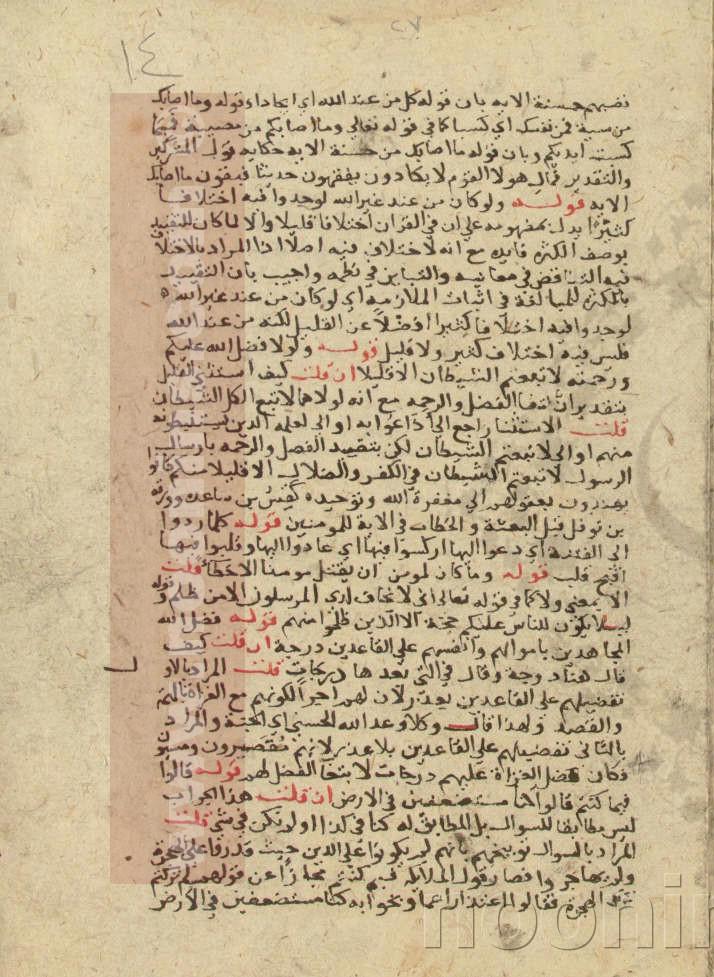 ٢٧
١٤
تصبهم حسنة الايه بان قوله كل من عند الله اي ايجادا وقوله وما اصابك
من سية فمن نفسك اي كسبا كما في قوله تعالى وما اصابكم من مصيبة فبما
كسبت ايديكم وبان قوله ما اصابك من حسنة الايه حكايه قول المشركين
والتقدير فمال هولا القوم لا يكادون يفقهون حديثا فيقولون ما اصابك
الايه قوله ولو كان من عند غير الله لوجدوا فيه اختلافا
كثيرا يدل بمفهومه على ان في القران اختلافا قليلا والا لما كان للتقييد
بوصف الكثره فايده مع انه لا اختلاف فيه اصلا اذ المراد بالاختلاف
فيه التناقض في معانيه والتباين في نظمه واجيب بان التقييد
بالكثره للمبالغة في اثبات الملازمه اي لو كان من عند غير الله
لوجدوا فيه اختلافا كثيرا فضلا عن القليل لكنه من عند الله
فليس فيه اختلاف كثير ولا قليل قوله ولولا فضل الله عليكم
ورحمته لاتبعتم الشيطان الا قليلا ان قلت كيف استثنى القليل
بتقدير انتفا الفضل والرحمه مع انه لولاهما لاتبع الكل الشيطان
قلت الاستثنا راجع الى اذاعوا به او الى لعلمه الذين يستنبطونه
منهم او الى لاتبعتم الشيطان لكن بتقييد الفضل والرحمه بارسال
الرسول لاتبعتم الشيطان في الكفر والضلال الا قليلا منكم كانوا
يهتدون بعقولهم الى معرفة الله وتوحيده كقس بن ساعده وورقه
بن نوفل قبل البعثة والخطاب في الاية للمومنين قوله كلما ردوا
الى الفتنة اي دعوا اليها اركسوا فيها اي عادوا اليها وقلبوا فيها
اقبح قلب قوله وما كان لمومن ان يقتل مومنا الا خطا قلت
الا بمعنى ولا كما في قوله تعالى اني لا يخاف لدي المرسلون الا من ظلم وقوله
ليلا يكون للناس عليكم حجة الا الذين ظلموا منهم قوله فضل الله
المجاهدين باموالهم وانفسهم على القاعدين درجة ان قلت كيف
قال هنا درجة وقال في التي بعدها درجات قلت المراد بالاو
تفضيلهم على القاعدين بعذر لان لهم اجرا لكونهم مع الغزاة بالهمة
والقصد ولهذا قال وكلا وعد الله الحسنى اي الجنة والمراد
بالثاني تفضيلهم على القاعدين بلا عذر لانهم مقصرون
فكان فضل الغزاة عليهم درجات لانتفا الفضل لهم قوله قالوا
فيما كنتم قالوا كنا مستضعفين في الارض ان قلت هذا الجواب
ليس مطابقا للسوال بل المطابق له كنا في كذا او لم نكن في شي قلت
المراد بالسوال توبيخهم بانهم لم يكونوا على الدين حيث قدروا على الهجرة
ولم يهاجروا فصار قول الملائكة فيم كنتم مجازا عن قولهم لم تركتم
الهجرة فقالوا اعتذارا عما وبخوا به كنا مستضعفين في الارض
noor